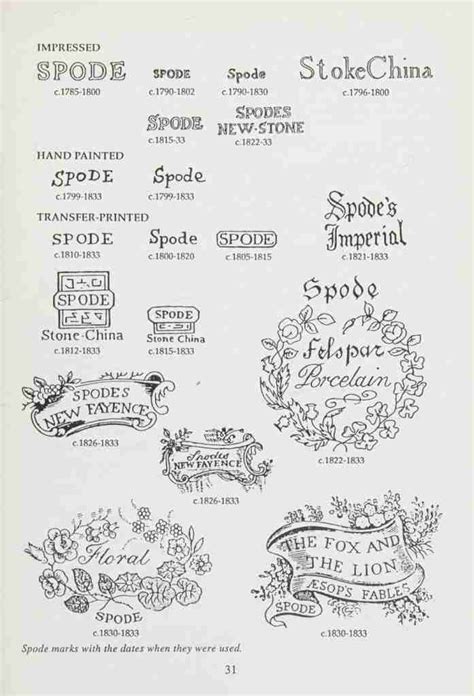 IMPRESSED
SPODE
c.1785-1800
SPODE
c.1790-1802
Spode
c.1790-1830
StokeChina
c.1796-1800
SPODE
c.1815-33
SPODES
NEW·STONE
c.1822-33
HAND PAINTED
SPODE
c.1799-1833
Spode
c.1799-1833
TRANSFER-PRINTED
SPODE
c.1810-1833
Spode
c.1800-1820
SPODE
c.1805-1815
Spode's
Imperial
c.1821-1833
SPODE
Stone-China
c.1812-1833
SPODE
Stone China
c.1815-1833
Spode
Felspar
Porcelain
c.1822-1833
SPODE'S
NEW FAYENCE
c.1826-1833
Spodes
NEW FAYENCE
c.1826-1833
Floral
SPODE
c.1830-1833
THE FOX AND
THE LION
ÆSOP'S FABLES
SPODE
c.1830-1833
Spode marks with the dates when they were used.
31